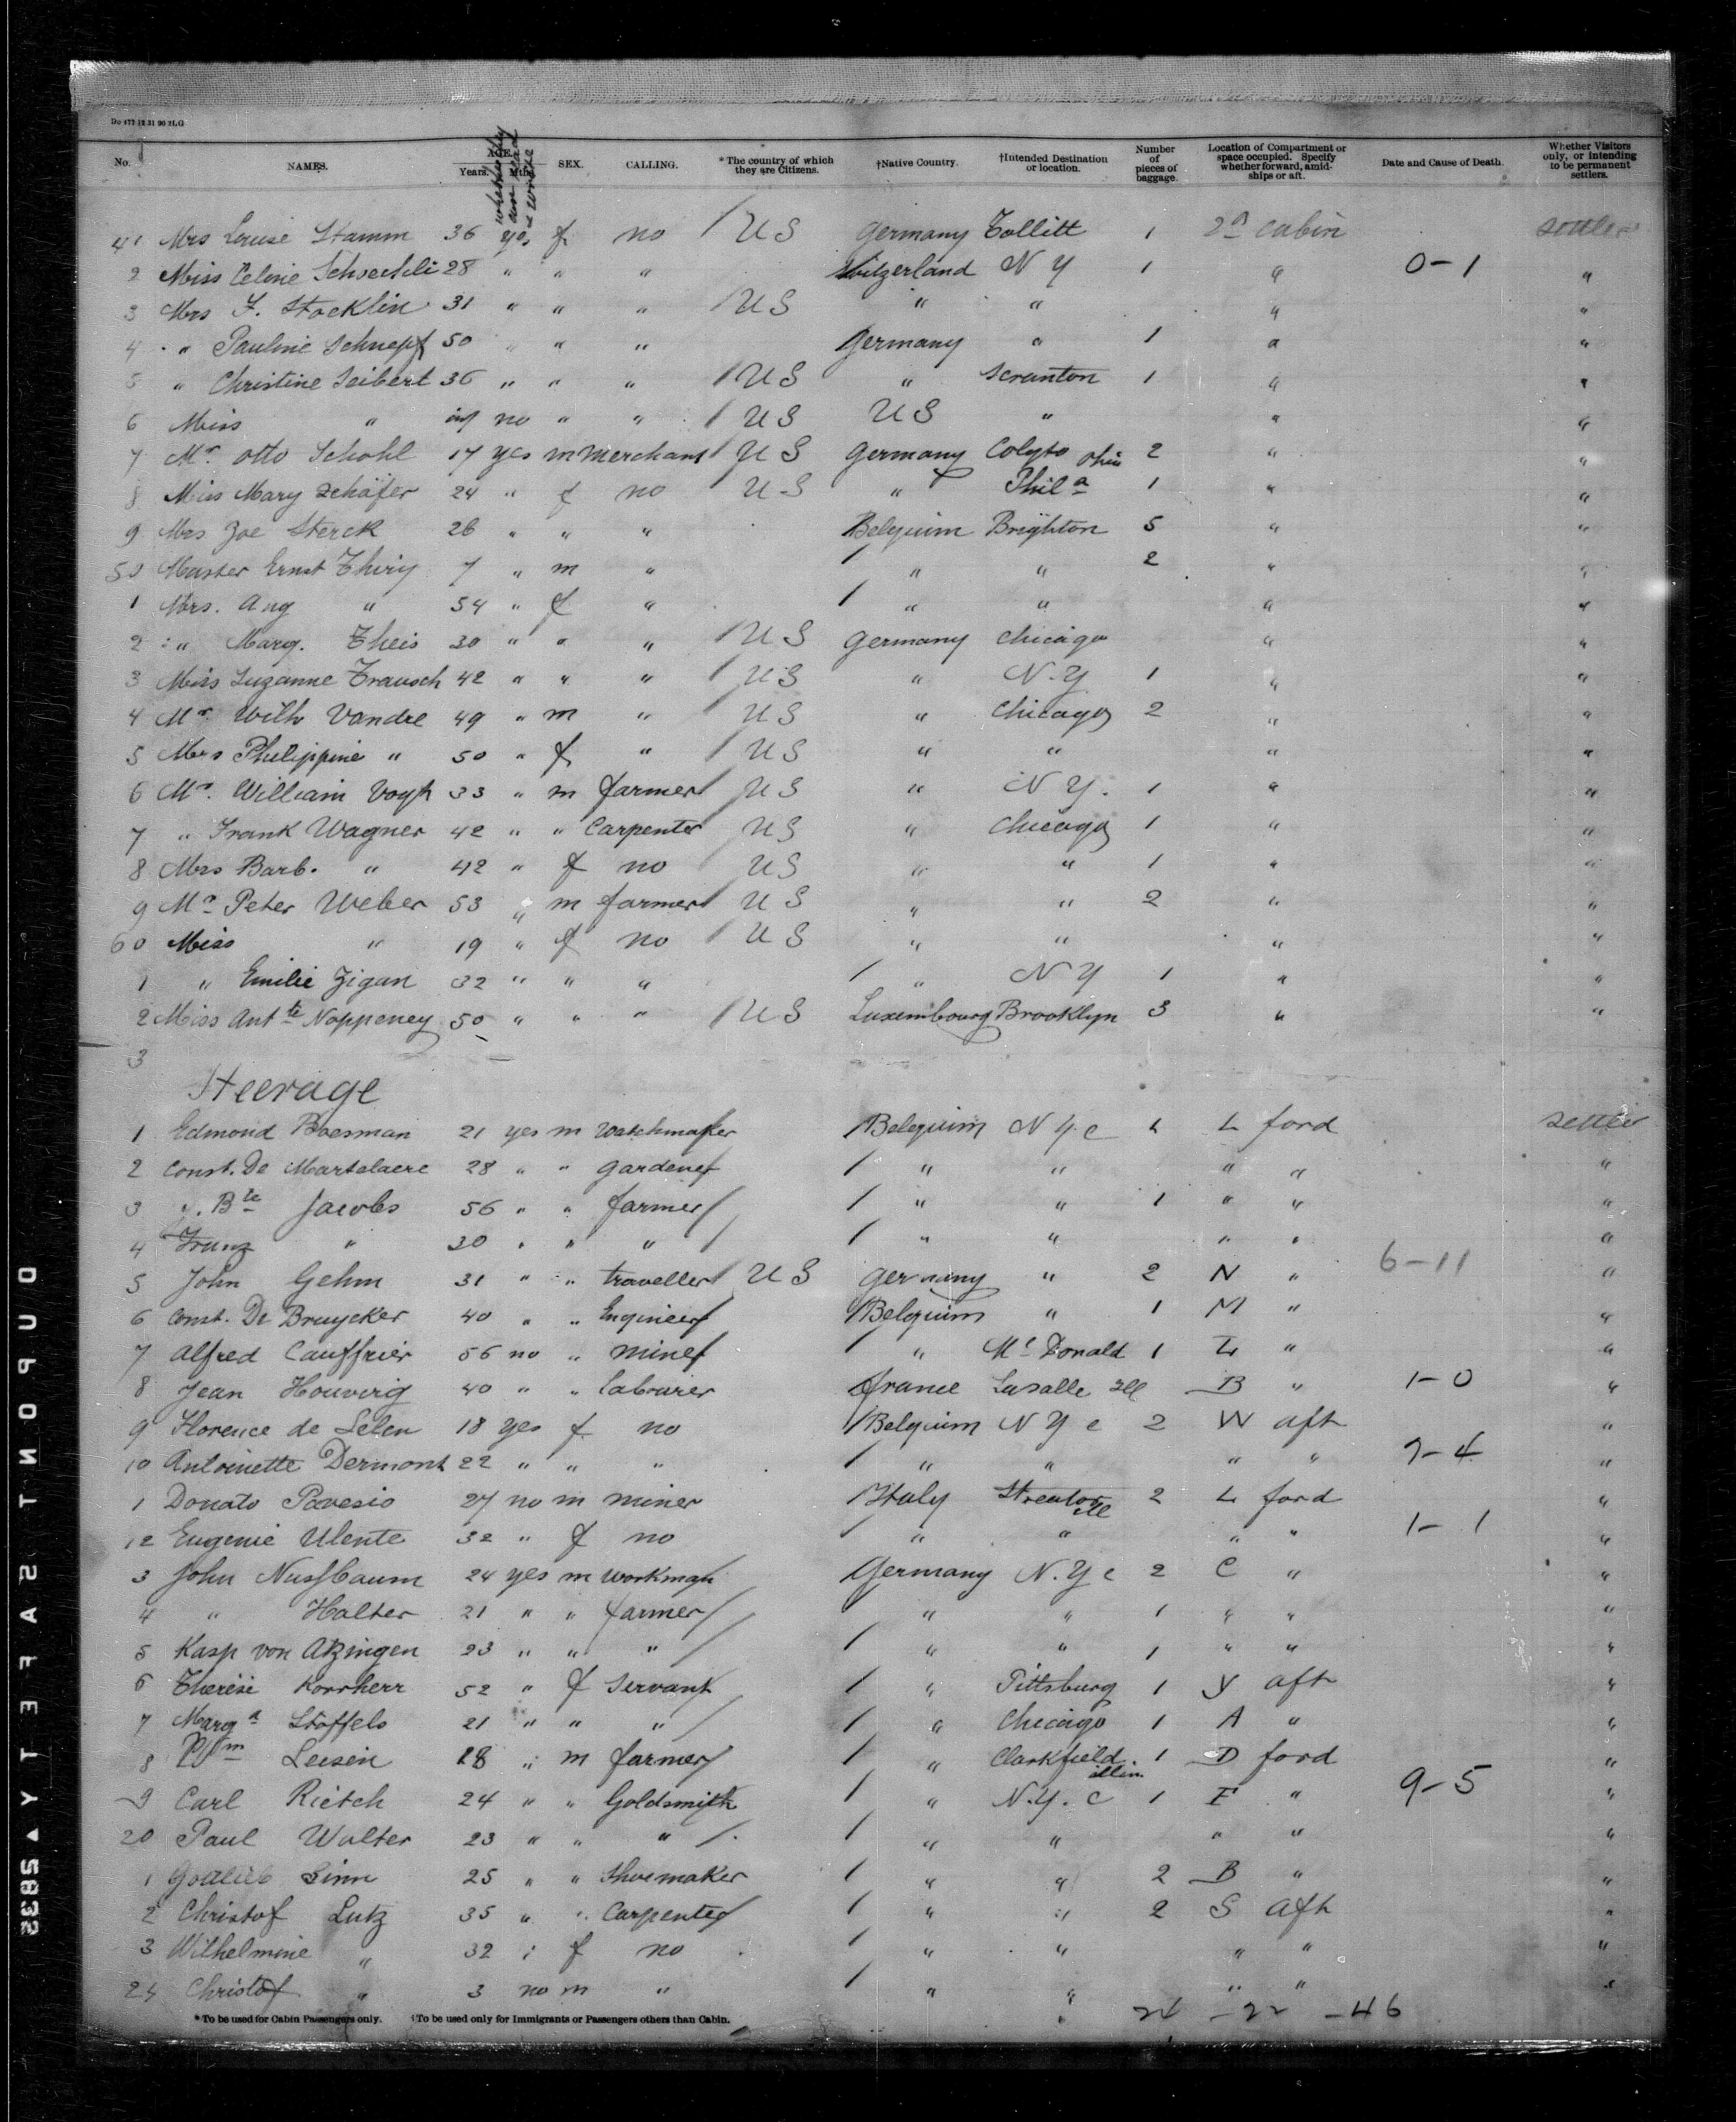 Do 477 12 31 90 2LG
No. NAMES. AGE. Years. Mths. whether they can read & write SEX. CALLING. * The country of which they are Citizens. †Native Country. †Intended Destination or location. Number of pieces of baggage. Location of Compartment or space occupied. Specify whether forward, amid-ships or aft. Date and Cause of Death. Whether Visitors only, or intending to be permanent settlers.
41 Mrs Louise Stamm 36 yes f no / U S Germany Tollitt 1 2d cabin settler
2 Miss Celine 28 " " " Switzerland N Y 1 " 0-1 "
3 Mrs F. Stocklin 31 " " " U S " " " "
4 " Pauline Schnepf 50 " " " Germany " 1 " "
5 " Christine Seibert 36 " " " / U S " Scranton 1 " "
6 Miss " inf no " " / U S U S " " "
7 Mr. Otto Schohl 17 yes m merchant / U S Germany Colyto Ohio 2 " "
8 Miss Mary Schäfer 24 " f no U S " Phila 1 " "
9 Mrs Zoe Sterck 26 " " " Belgium Brighton 5 " "
50 Master Ernst Thiry 7 " m " / " " 2 " "
1 Mrs. Aug " 54 " f " / " " " "
2 " Marg. Theis 30 " " " / U S Germany Chicago " "
3 Miss Suzanne Trausch 42 " " " U S " N.Y. 1 " "
4 Mr. Wilh Vandre 49 " m " / U S " Chicago 2 " "
5 Mrs Philippine " 50 " f " / U S " " " "
6 Mr. William Vogh 33 " m farmer / U S " N Y. 1 " "
7 " Frank Wagner 42 " " Carpenter U S " Chicago 1 " "
8 Mrs Barb. " 42 " f no U S " " 1 " "
9 Mr Peter Weber 53 " m farmer / U S " " 2 " "
60 Miss " 19 " f no / U S " " " "
1 " Emilie Zigan 32 " " " / " N Y 1 " "
2 Miss Antte Noppeney 50 " " " / U S Luxembourg Brooklyn 3 " "
3
Steerage
1 Edmond Boesman 21 yes m Watchmaker / Belgium N Y c 1 L ford settler
2 Const. De Martelaere 28 " " gardener / " " " " "
3 J. Bte Jacobs 56 " " farmer / / " " 1 " " "
4 Franz " 30 " " " / / " " " " "
5 John Gehm 31 " " traveller / U S Germany " 2 N " 6-11 "
6 Const. De Bruycker 40 " " Engineer / Belgium " 1 M " "
7 Alfred Cauffrier 56 no " miner / " Mc Donald 1 L " "
8 Jean Houverig 40 " " labourer france Lasalle Ill B " 1-0 "
9 Florence de Selen 18 yes f no / Belgium N Y c 2 W aft "
10 Antoinette Dermont 22 " " " / " " " " 7-4 "
1 Donato Pavesio 27 no m miner / Italy Streator Ill 2 L ford "
12 Eugenie Ulente 32 " f no / " " " " 1-1 "
3 John Nussbaum 24 yes m workman / Germany N.Y c 2 C " "
4 " Halter 21 " " farmer / / " " 1 " " "
5 Kasp von Atzingen 23 " " " / / " " 1 " " "
6 Therese Kornherr 52 " f servant / " Pittsburg 1 Y aft "
7 Marga Stoffels 21 " " " / / " Chicago 1 A " "
8 Wm Leisen 28 " m farmer / " Clarkfield illin. 1 D ford "
9 Carl Rietch 24 " " Goldsmith / " N.Y. c 1 F " 9-5 "
20 Paul Walter 23 " " " / / " " " " "
1 Gottlieb Sinn 25 " " Shoemaker / " " 2 B " "
2 Christof Lutz 35 " " Carpenter / " " 2 S aft "
3 Wilhelmine " 32 " f no / " " " " "
24 Christof " 3 no m " / " " " " "
24 - 22 - 46
* To be used for Cabin Passengers only. †To be used only for Immigrants or Passengers others than Cabin.
DUPONT SAFETY ▲ 5832